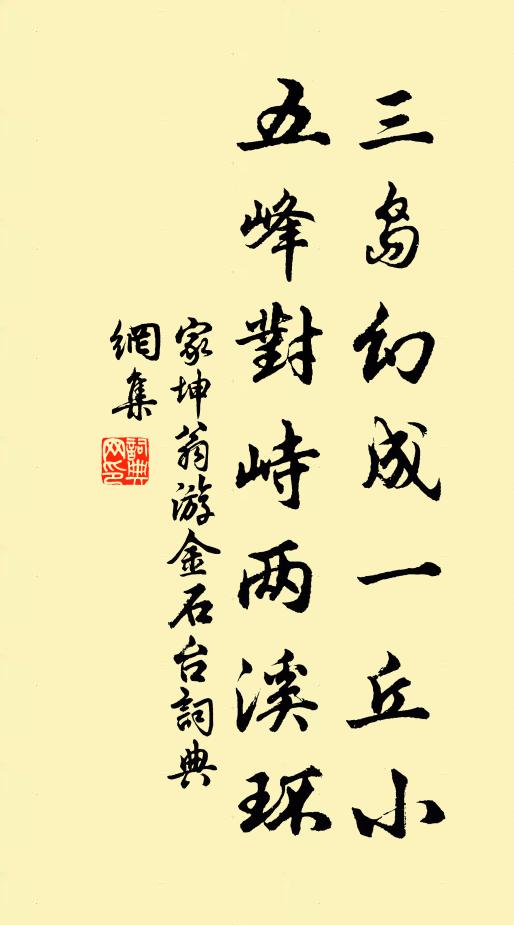 三岛幻成一丘小
五峰對峙两溪环
家坤翁游金石台詞典
網集
詞典网印